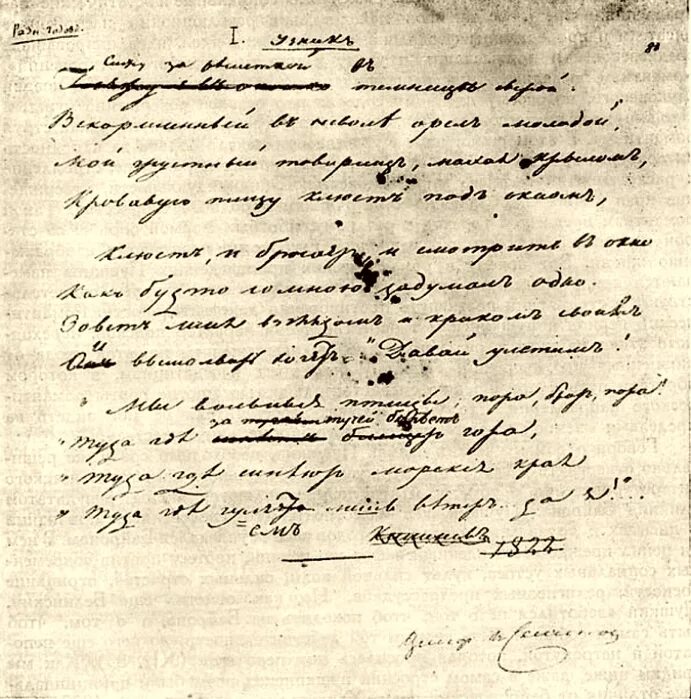 I. Узникъ
83
Сижу за рѣшеткой въ
темницѣ сырой.
Вскормленный въ неволѣ орелъ молодой,
Мой грустный товарищъ, махая крыломъ,
Кровавую пищу клюетъ подъ окномъ,
Клюетъ, и бросаетъ, и смотритъ въ окно
Какъ будто со мною задумалъ одно.
Зоветъ меня взглядомъ и крикомъ своимъ
И вымолвить хочетъ: "Давай улетимъ!
" Мы вольныя птицы; пора, братъ, пора!
за тучей бѣлѣетъ
" Туда гдѣ гора,
" Туда гдѣ синѣютъ морскіе края
" Туда гдѣ гуляемъ лишь вѣтръ да я!"...
=емъ Кишиневъ
1822